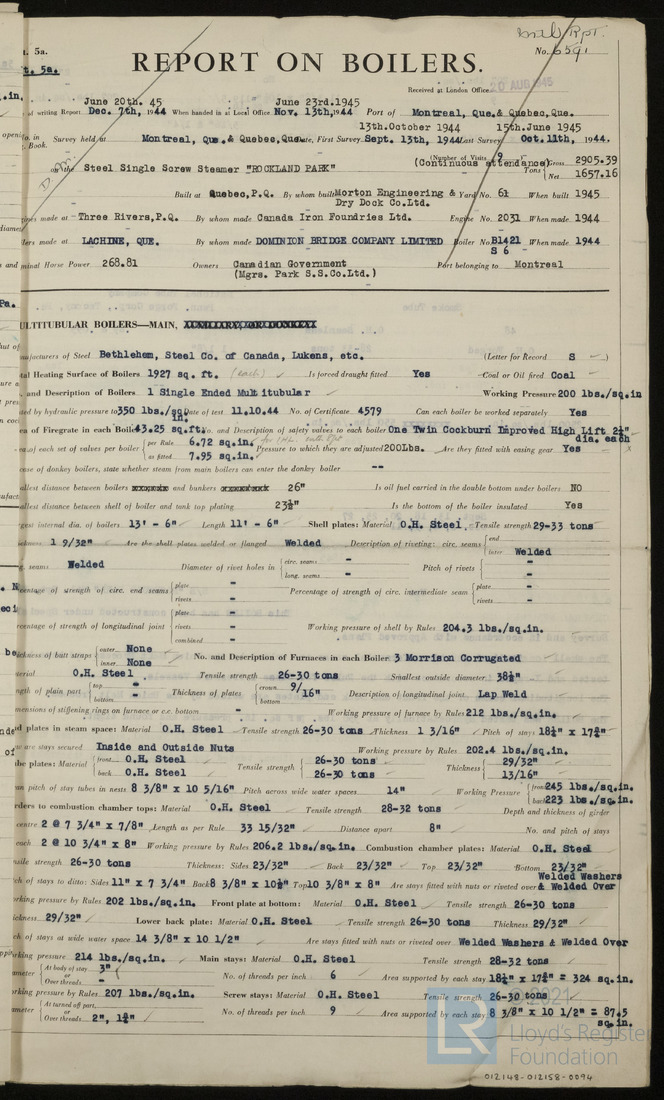 t. 5a.
t. 5a.
No. 6591
REPORT ON BOILERS.
Received at London Office
20 AUG 1945
June 20th. 45 June 23rd.1945
of writing Report Dec. 7th, 1944 When handed in at Local Office Nov. 13th, 1944 Port of Montreal, Que. & Quebec, Que.
13th.October 1944 15th.June 1945
Survey held at Montreal, Que. & Quebec, Que. Date, First Survey Sept. 13th, 1944 Last Survey Oct. 11th, 1944.
(Number of Visits 9
(Continuous attendance)
on the Steel Single Screw Steamer "ROCKLAND PARK" Tons { Gross 2905.39
Net 1657.16
Built at Quebec, P.Q. By whom built Morton Engineering & Dry Dock Co.Ltd. Yard No. 61 When built 1945
ines made at Three Rivers, P.Q. By whom made Canada Iron Foundries Ltd. Engine No. 2031 When made 1944
lers made at LACHINE, QUE. By whom made DOMINION BRIDGE COMPANY LIMITED Boiler No. B1421 When made 1944
S 6
minal Horse Power 268.81 Owners Canadian Government Port belonging to Montreal
(Mgrs. Park S.S.Co.Ltd.)
ULTITUBULAR BOILERS—MAIN, AUXILIARY, OR DONKEY
nufacturers of Steel Bethlehem, Steel Co. of Canada, Lukens, etc. (Letter for Record S )
tal Heating Surface of Boilers 1927 sq. ft. (each) Is forced draught fitted Yes Coal or Oil fired Coal
and Description of Boilers 1 Single Ended Multitubular Working Pressure 200 lbs./sq.in
ted by hydraulic pressure to 350 lbs./sq.in. Date of test 11.10.44 No. of Certificate 4579 Can each boiler be worked separately Yes
ea of Firegrate in each Boiler 43.25 sq.ft. No. and Description of safety valves to each boiler One Twin Cockburn Improved High Lift 2½" dia. each
ea of each set of valves per boiler { per Rule 6.72 sq.in.
as fitted 7.95 sq.in. Pressure to which they are adjusted 200Lbs. Are they fitted with easing gear Yes
ase of donkey boilers, state whether steam from main boilers can enter the donkey boiler --
allest distance between boilers and bunkers 26" Is oil fuel carried in the double bottom under boilers NO
allest distance between shell of boiler and tank top plating 23½" Is the bottom of the boiler insulated Yes
gest internal dia. of boilers 13' - 6" Length 11' - 6" Shell plates: Material O.H. Steel. Tensile strength 29-33 tons
ickness 1 9/32" Are the shell plates welded or flanged Welded Description of riveting: circ. seams { end
inter Welded
g. seams Welded Diameter of rivet holes in { circ. seams -
long. seams - Pitch of rivets { -
-
centage of strength of circ. end seams { plate -
rivets - Percentage of strength of circ. intermediate seam { plate -
rivets -
centage of strength of longitudinal joint { plate -
rivets -
combined - Working pressure of shell by Rules 204.3 lbs./sq.in.
ickness of butt straps { outer None
inner None No. and Description of Furnaces in each Boiler 3 Morrison Corrugated
terial O.H. Steel Tensile strength 26-30 tons Smallest outside diameter 38½"
ngth of plain part { top -
bottom - Thickness of plates { crown
bottom 9/16" Description of longitudinal joint Lap Weld
mensions of stiffening rings on furnace or c.c. bottom - Working pressure of furnace by Rules 212 lbs./sq.in.
d plates in steam space: Material O.H. Steel Tensile strength 26-30 tons Thickness 1 3/16" Pitch of stays 18¼" x 17¾"
w are stays secured Inside and Outside Nuts Working pressure by Rules 202.4 lbs./sq.in.
be plates: Material { front O.H. Steel
back O.H. Steel Tensile strength { 26-30 tons
26-30 tons Thickness { 29/32"
13/16"
an pitch of stay tubes in nests 8 3/8" x 10 5/16" Pitch across wide water spaces 14" Working Pressure { front 245 lbs./sq.in.
back 223 lbs./sq.in.
rders to combustion chamber tops: Material O.H. Steel Tensile strength 28-32 tons Depth and thickness of girder
centre 2 @ 7 3/4" x 7/8" Length as per Rule 33 15/32" Distance apart 8" No. and pitch of stays
each 2 @ 10 3/4" x 8" Working pressure by Rules 206.2 lbs./sq.in. Combustion chamber plates: Material O.H. Steel
nsile strength 26-30 tons Thickness: Sides 23/32" Back 23/32" Top 23/32" Bottom 23/32"
ch of stays to ditto: Sides 11" x 7 3/4" Back 8 3/8" x 10½" Top 10 3/8" x 8" Are stays fitted with nuts or riveted over Welded Washers & Welded Over
rking pressure by Rules 202 lbs./sq.in. Front plate at bottom: Material O.H. Steel Tensile strength 26-30 tons
ickness 29/32" Lower back plate: Material O.H. Steel Tensile strength 26-30 tons Thickness 29/32"
ch of stays at wide water space 14 3/8" x 10 1/2" Are stays fitted with nuts or riveted over Welded Washers & Welded Over
rking pressure 214 lbs./sq.in. Main stays: Material O.H. Steel Tensile strength 28-32 tons
ameter { At body of stay 3"
or
Over threads - No. of threads per inch 6 Area supported by each stay 18¼" x 17¾" = 324 sq.in.
rking pressure by Rules 207 lbs./sq.in. Screw stays: Material O.H. Steel Tensile strength 26-30 tons
ameter { At turned off part,
or
Over threads 2", 1¾" No. of threads per inch 9 Area supported by each stay 8 3/8" x 10 1/2" = 87.5 sq.in.
© 2021
LR
Lloyd's Register
Foundation
012148-012158-0094